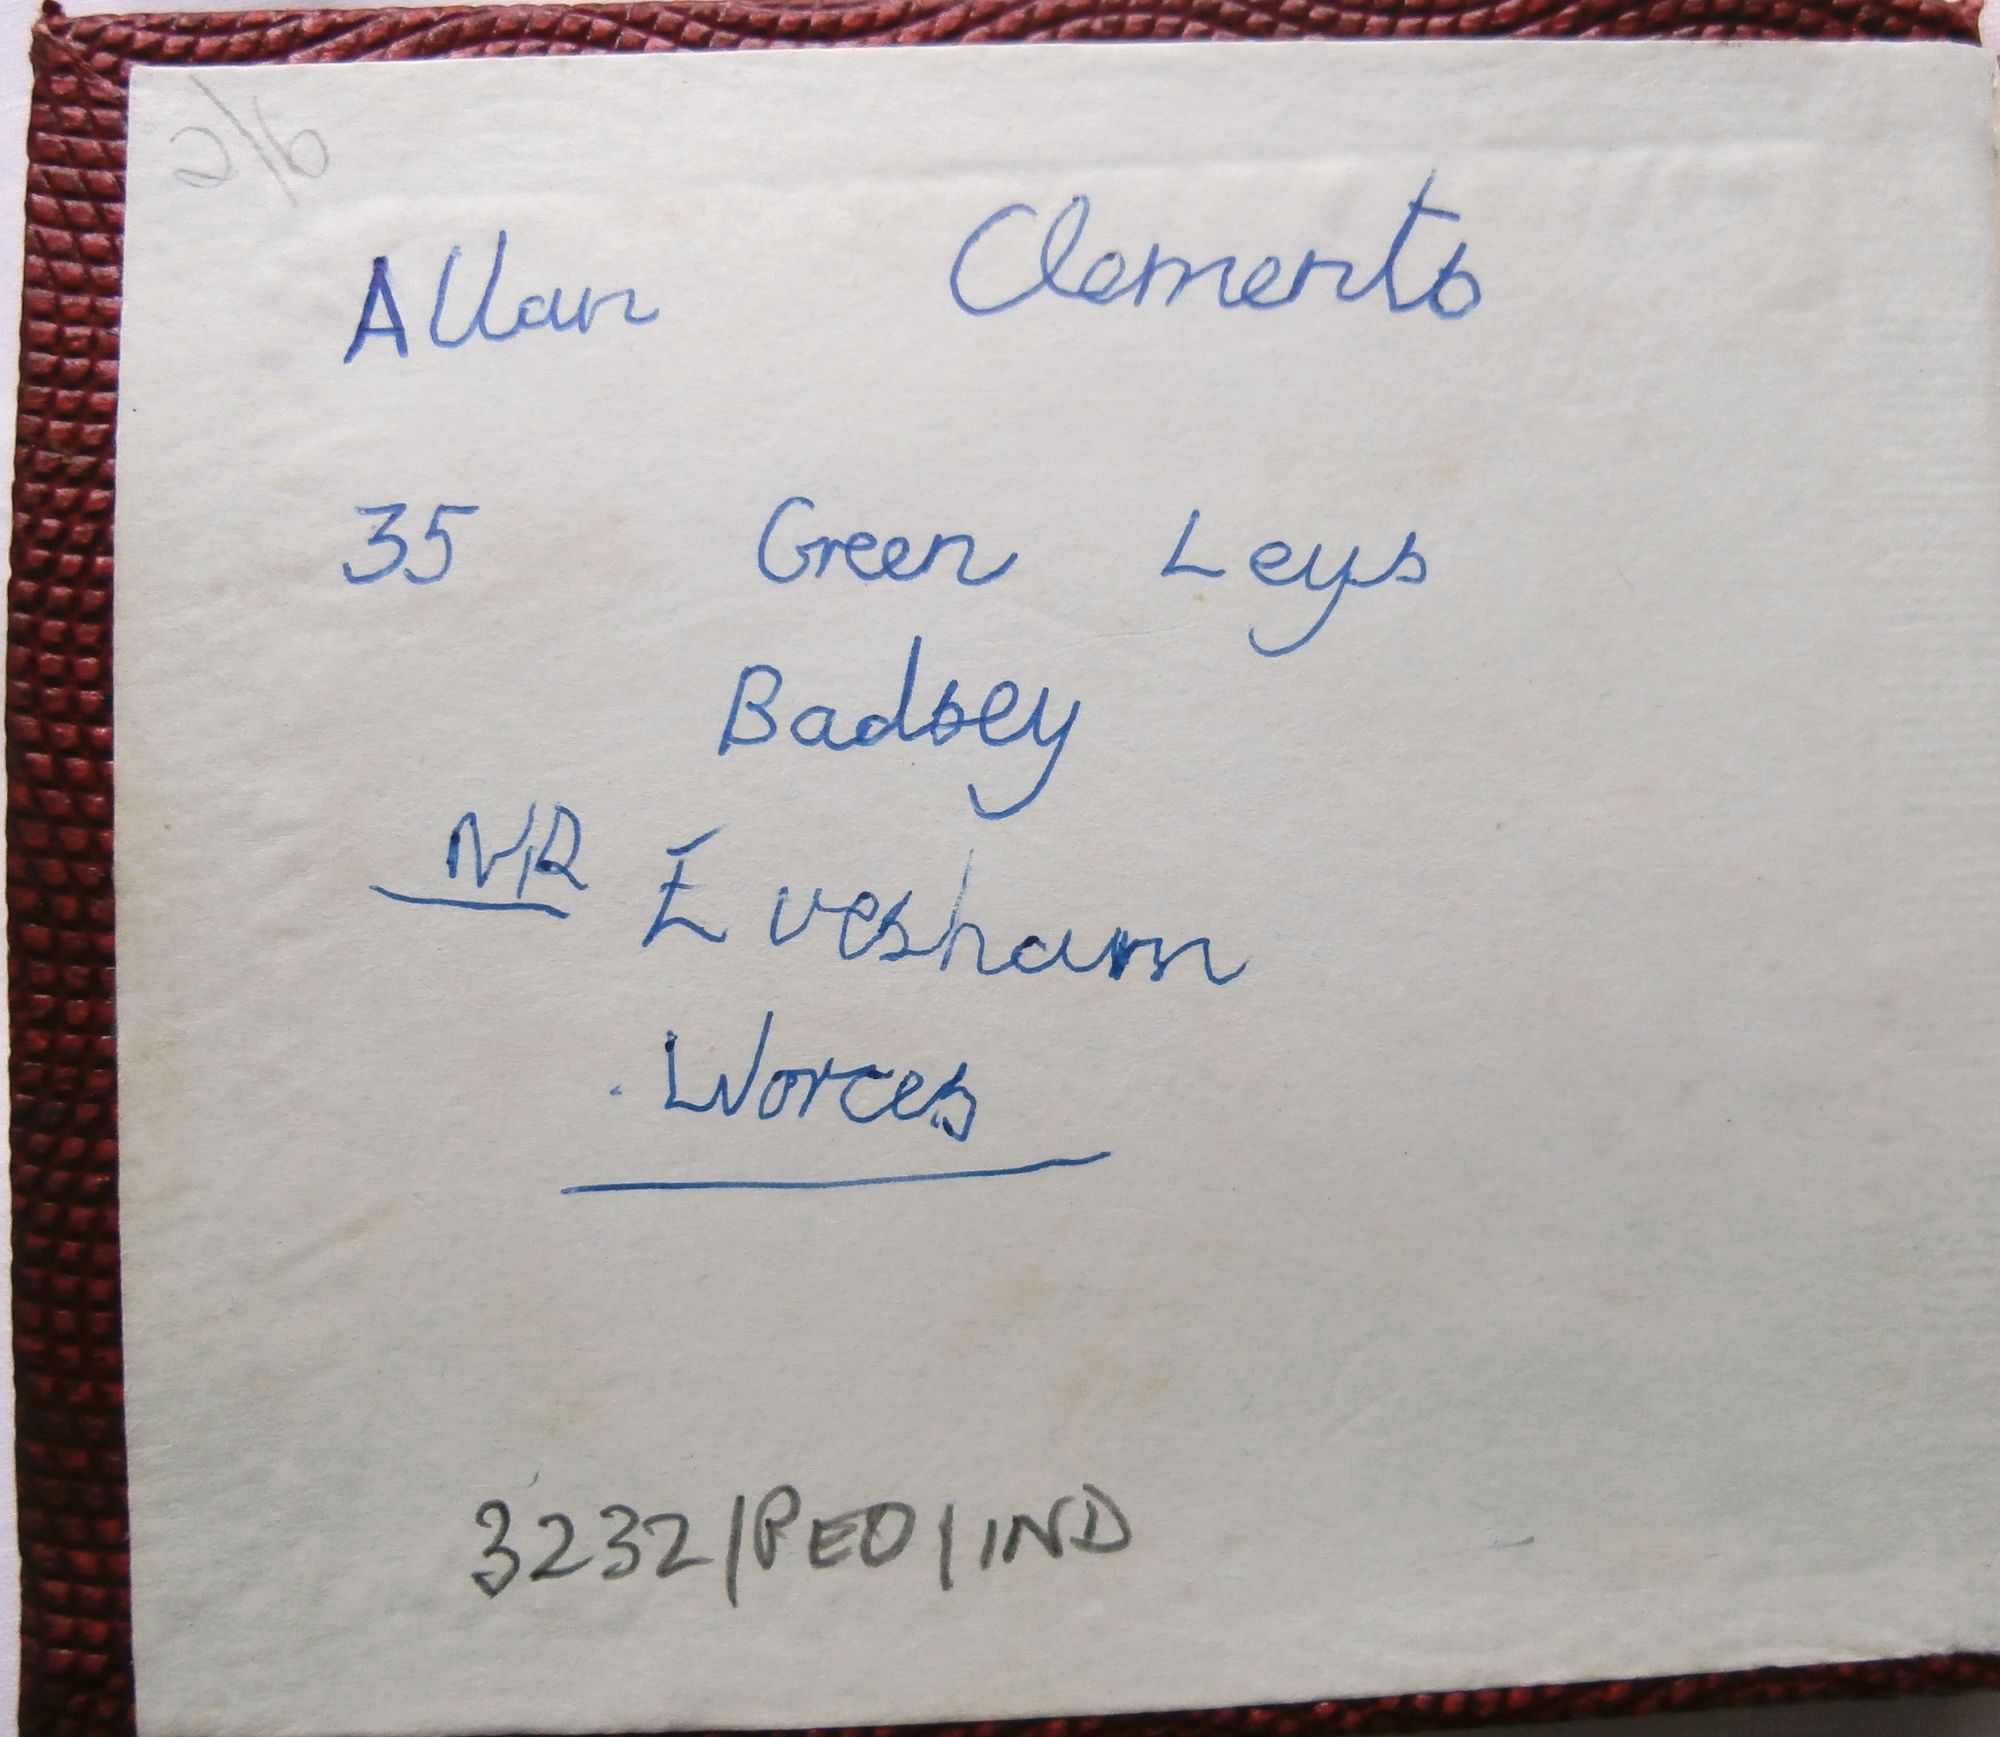 2/6
Allan Clements
35 Green Leys
Badsey
NR Evesham
Worces
3232/PEO/IND